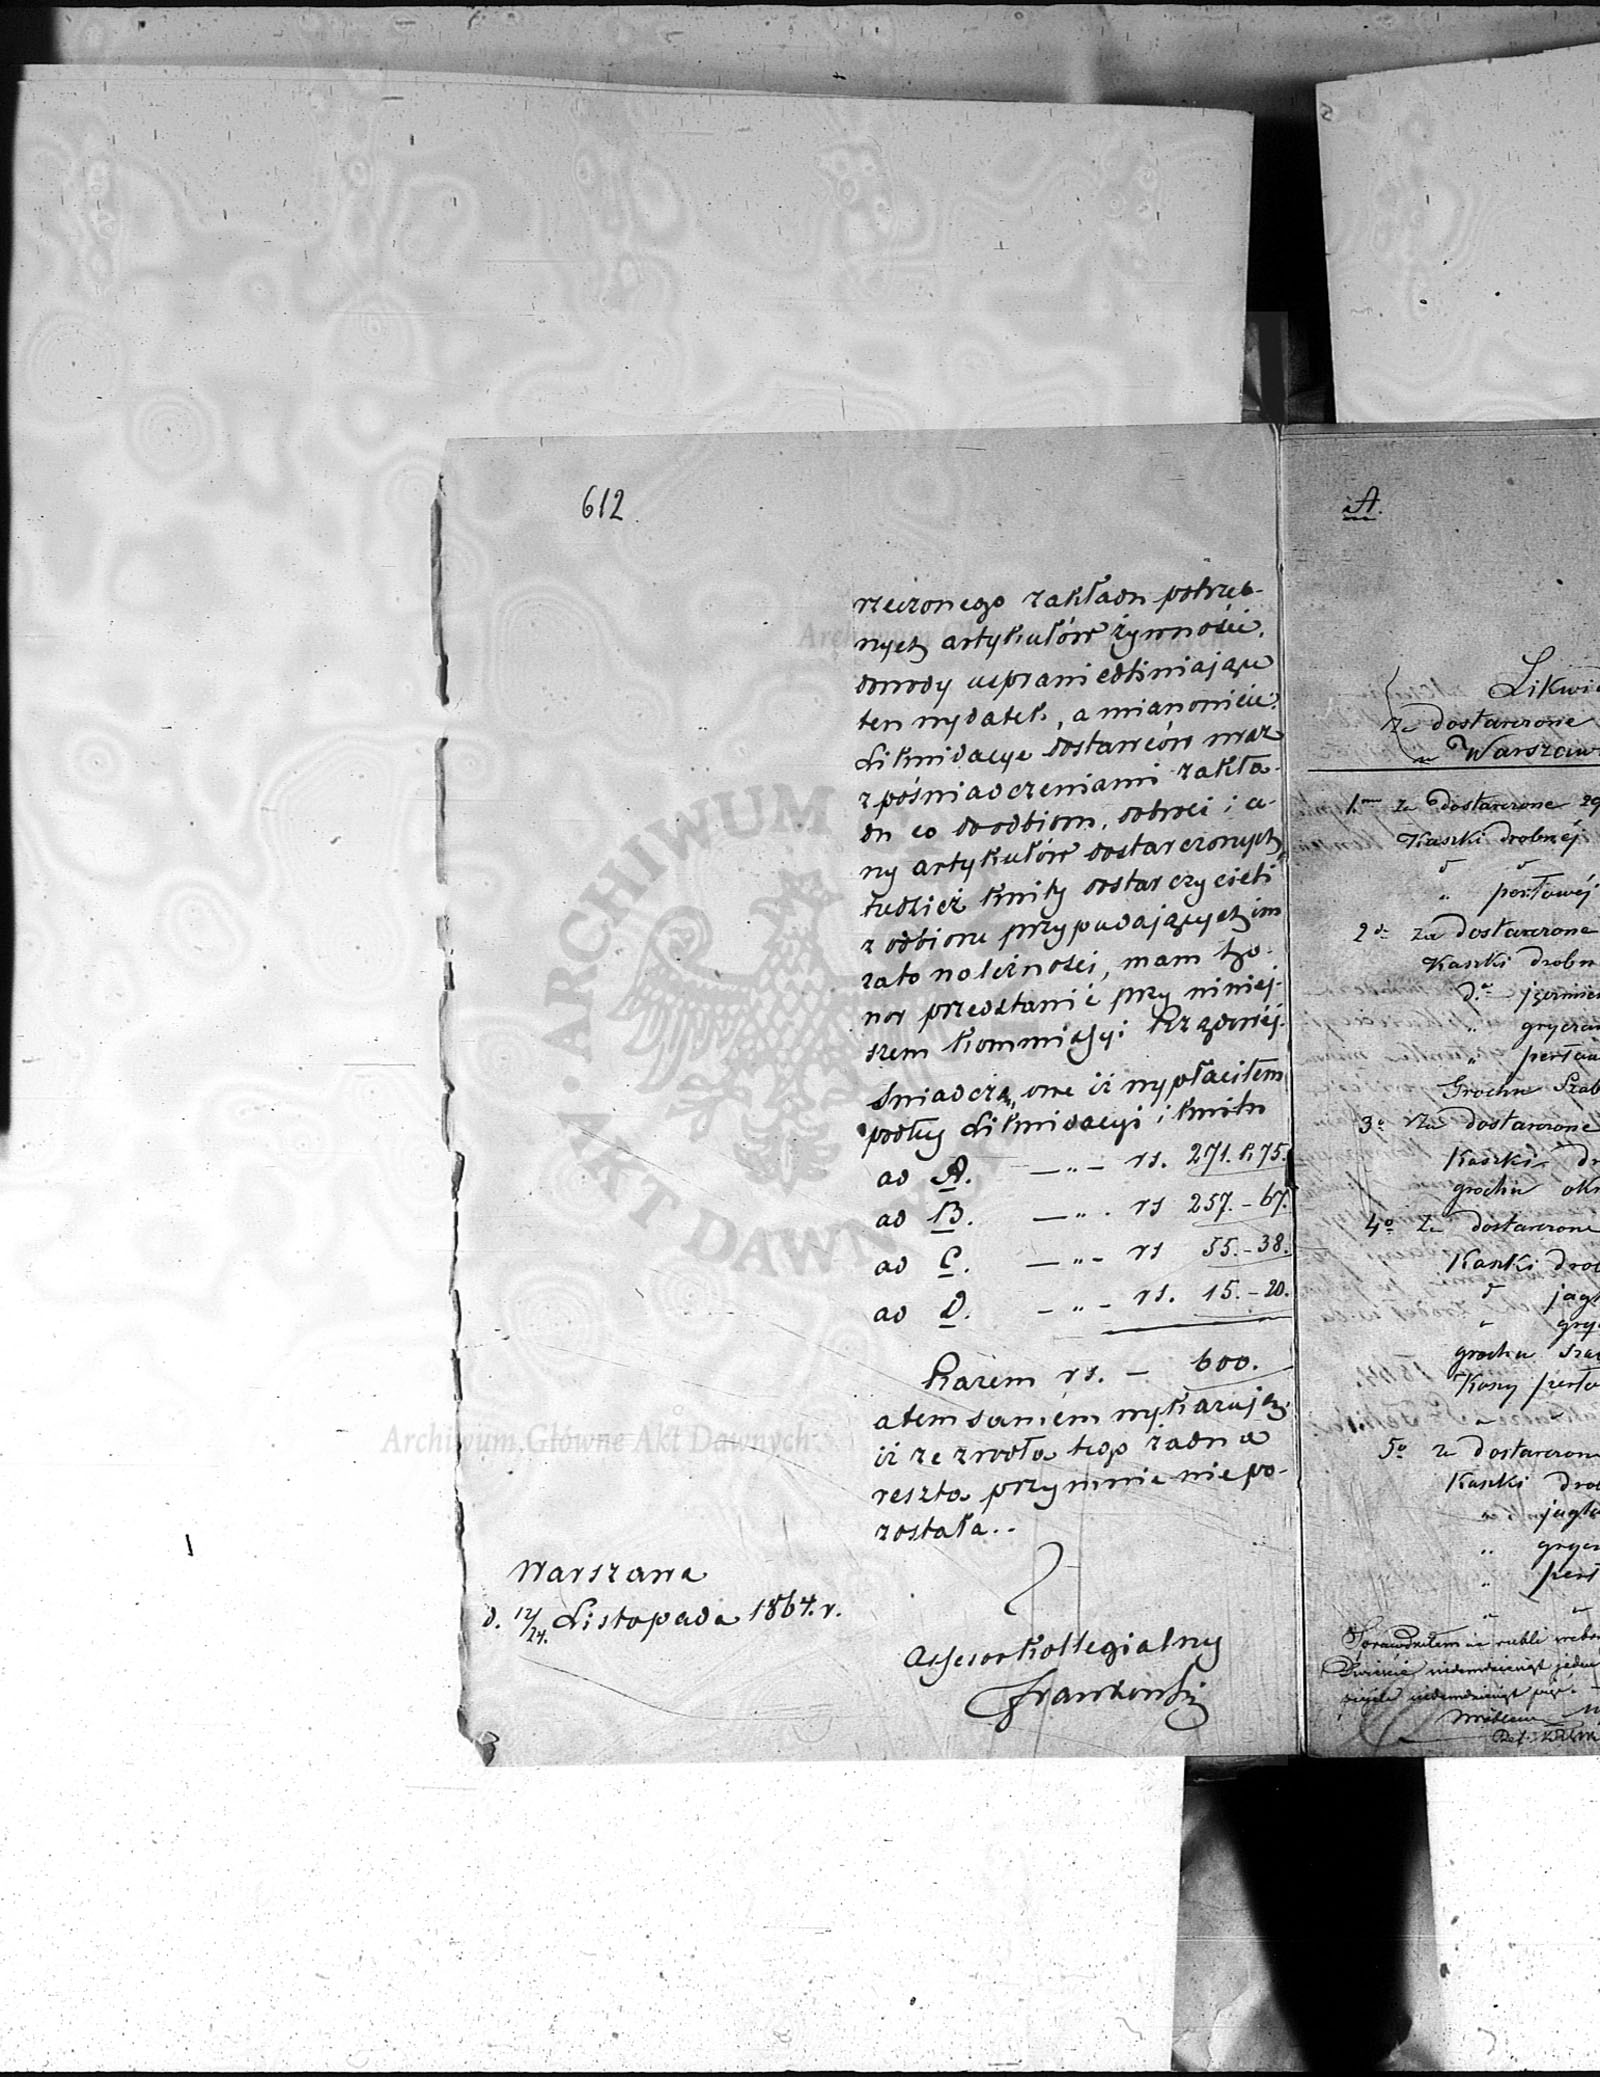 612.
rzeczonego zakładu potrzeb-
nych artykułów żywności,
dowody usprawiedliwiające
ten wydatek, a mianowicie:
Likwidacye dostawców wraz
z poświadczeniami zakła-
du co do odbioru, dobroci i ce-
ny artykułów dostarczonych,
tudzież kwity dostarczycieli
z odbioru przypadających im
za to należności, mam ho-
nor przedstawić przy niniej-
szem Kommissyi Rządowéj.
Świadczą one iż wypłaciłem
podług Likwidacyi i kwitu
ad A. — „ — rs. 271. k 75.
ad B. — „ . rs 257. – 67.
ad C. — „ – rs 55. – 38.
ad D. – „ – rs. 15. – 20.
Razem rs. – 600.
a tem samem wykazuję,
iż ze źródła tego żadna
reszta przy mnie nie po-
została..
Warszawa
d. 12/24. Listopada 1864. r.
Assesor Kollegialny
A.
Likwid
za dostarczone
w Warszaw
1. za dostarczone 29
Kaszki drobnéj
„ perłowéj
2 za dostarczone
Kaszki drobn
d.o jęczmien
„ grycza
„ perłow
Grochu Szab
3o za dostarczone
Kaszki dr
grochu okr
4o za dostarczone
Kaszki drob
jagl
„ gryc
grochu sza
Kaszy perło
5o za dostarczon
Kaszki drob
„ jagla
„ grycz
„ perł
ARCHIWUM
AKT DAWNYCH
Archiwum Główne Akt Dawnych